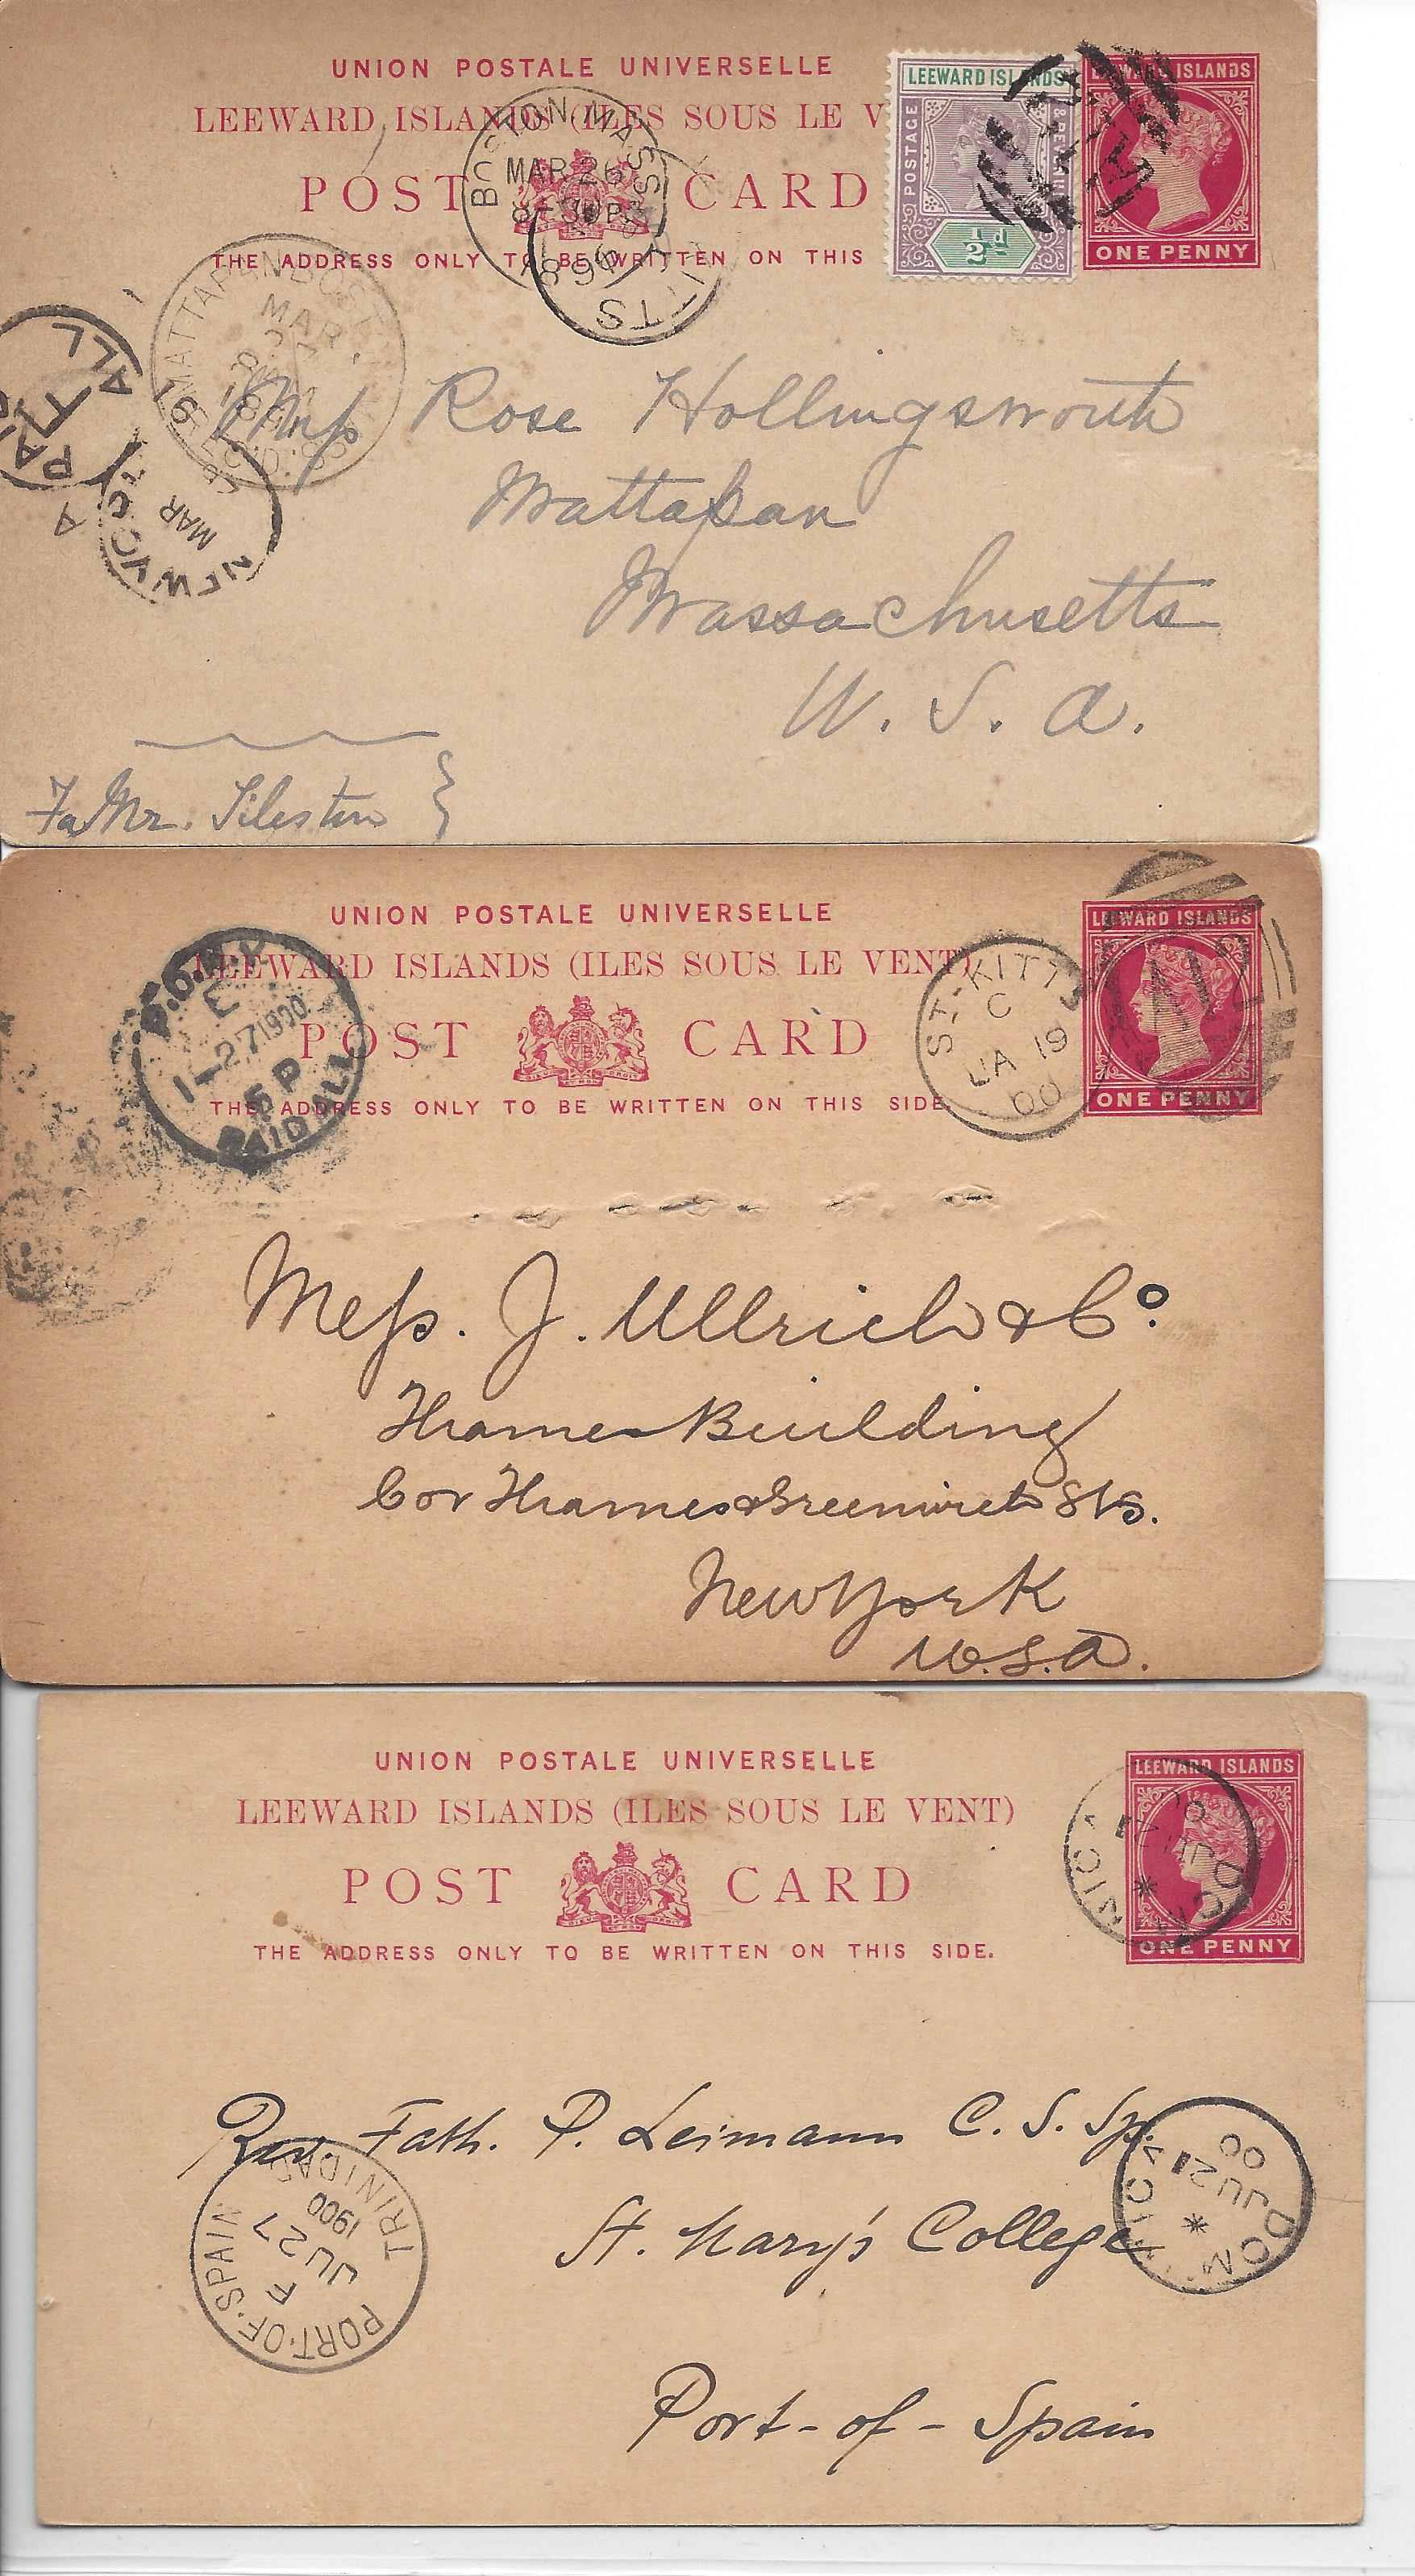 UNION POSTALE UNIVERSELLE
LEEWARD ISLANDS (ILES SOUS LE V
POST CARD
THE ADDRESS ONLY TO BE WRITTEN ON THIS
LEEWARD ISLANDS
POSTAGE & REVENUE
½d
LEEWARD ISLANDS
ONE PENNY
BOSTON MASS
MAR 26
96
MAR
NEW YORK
MAR
PAID
ALL
Rose Hollingsworth
Mattapan
Massachusetts
U. S. A.
Mr. Tileston
UNION POSTALE UNIVERSELLE
LEEWARD ISLANDS (ILES SOUS LE VENT)
POST CARD
THE ADDRESS ONLY TO BE WRITTEN ON THIS SIDE
LEEWARD ISLANDS
ONE PENNY
ST. KITTS
C
JA 19
00
A12
E
1-27 1900
5 P
PAID ALL
Mess. J. Ullrich & Co.
Thames Building
Cor Thames & Greenwich Sts.
New York
U.S.A.
UNION POSTALE UNIVERSELLE
LEEWARD ISLANDS (ILES SOUS LE VENT)
POST CARD
THE ADDRESS ONLY TO BE WRITTEN ON THIS SIDE.
LEEWARD ISLANDS
ONE PENNY
DOMINICA
Rev. Fath. P. Leimann C. S. Sp.
St. Mary's College
Port-of-Spain
DOMINICA
JU 21
00
PORT-OF-SPAIN
F
JU 27
1900
TRINIDAD